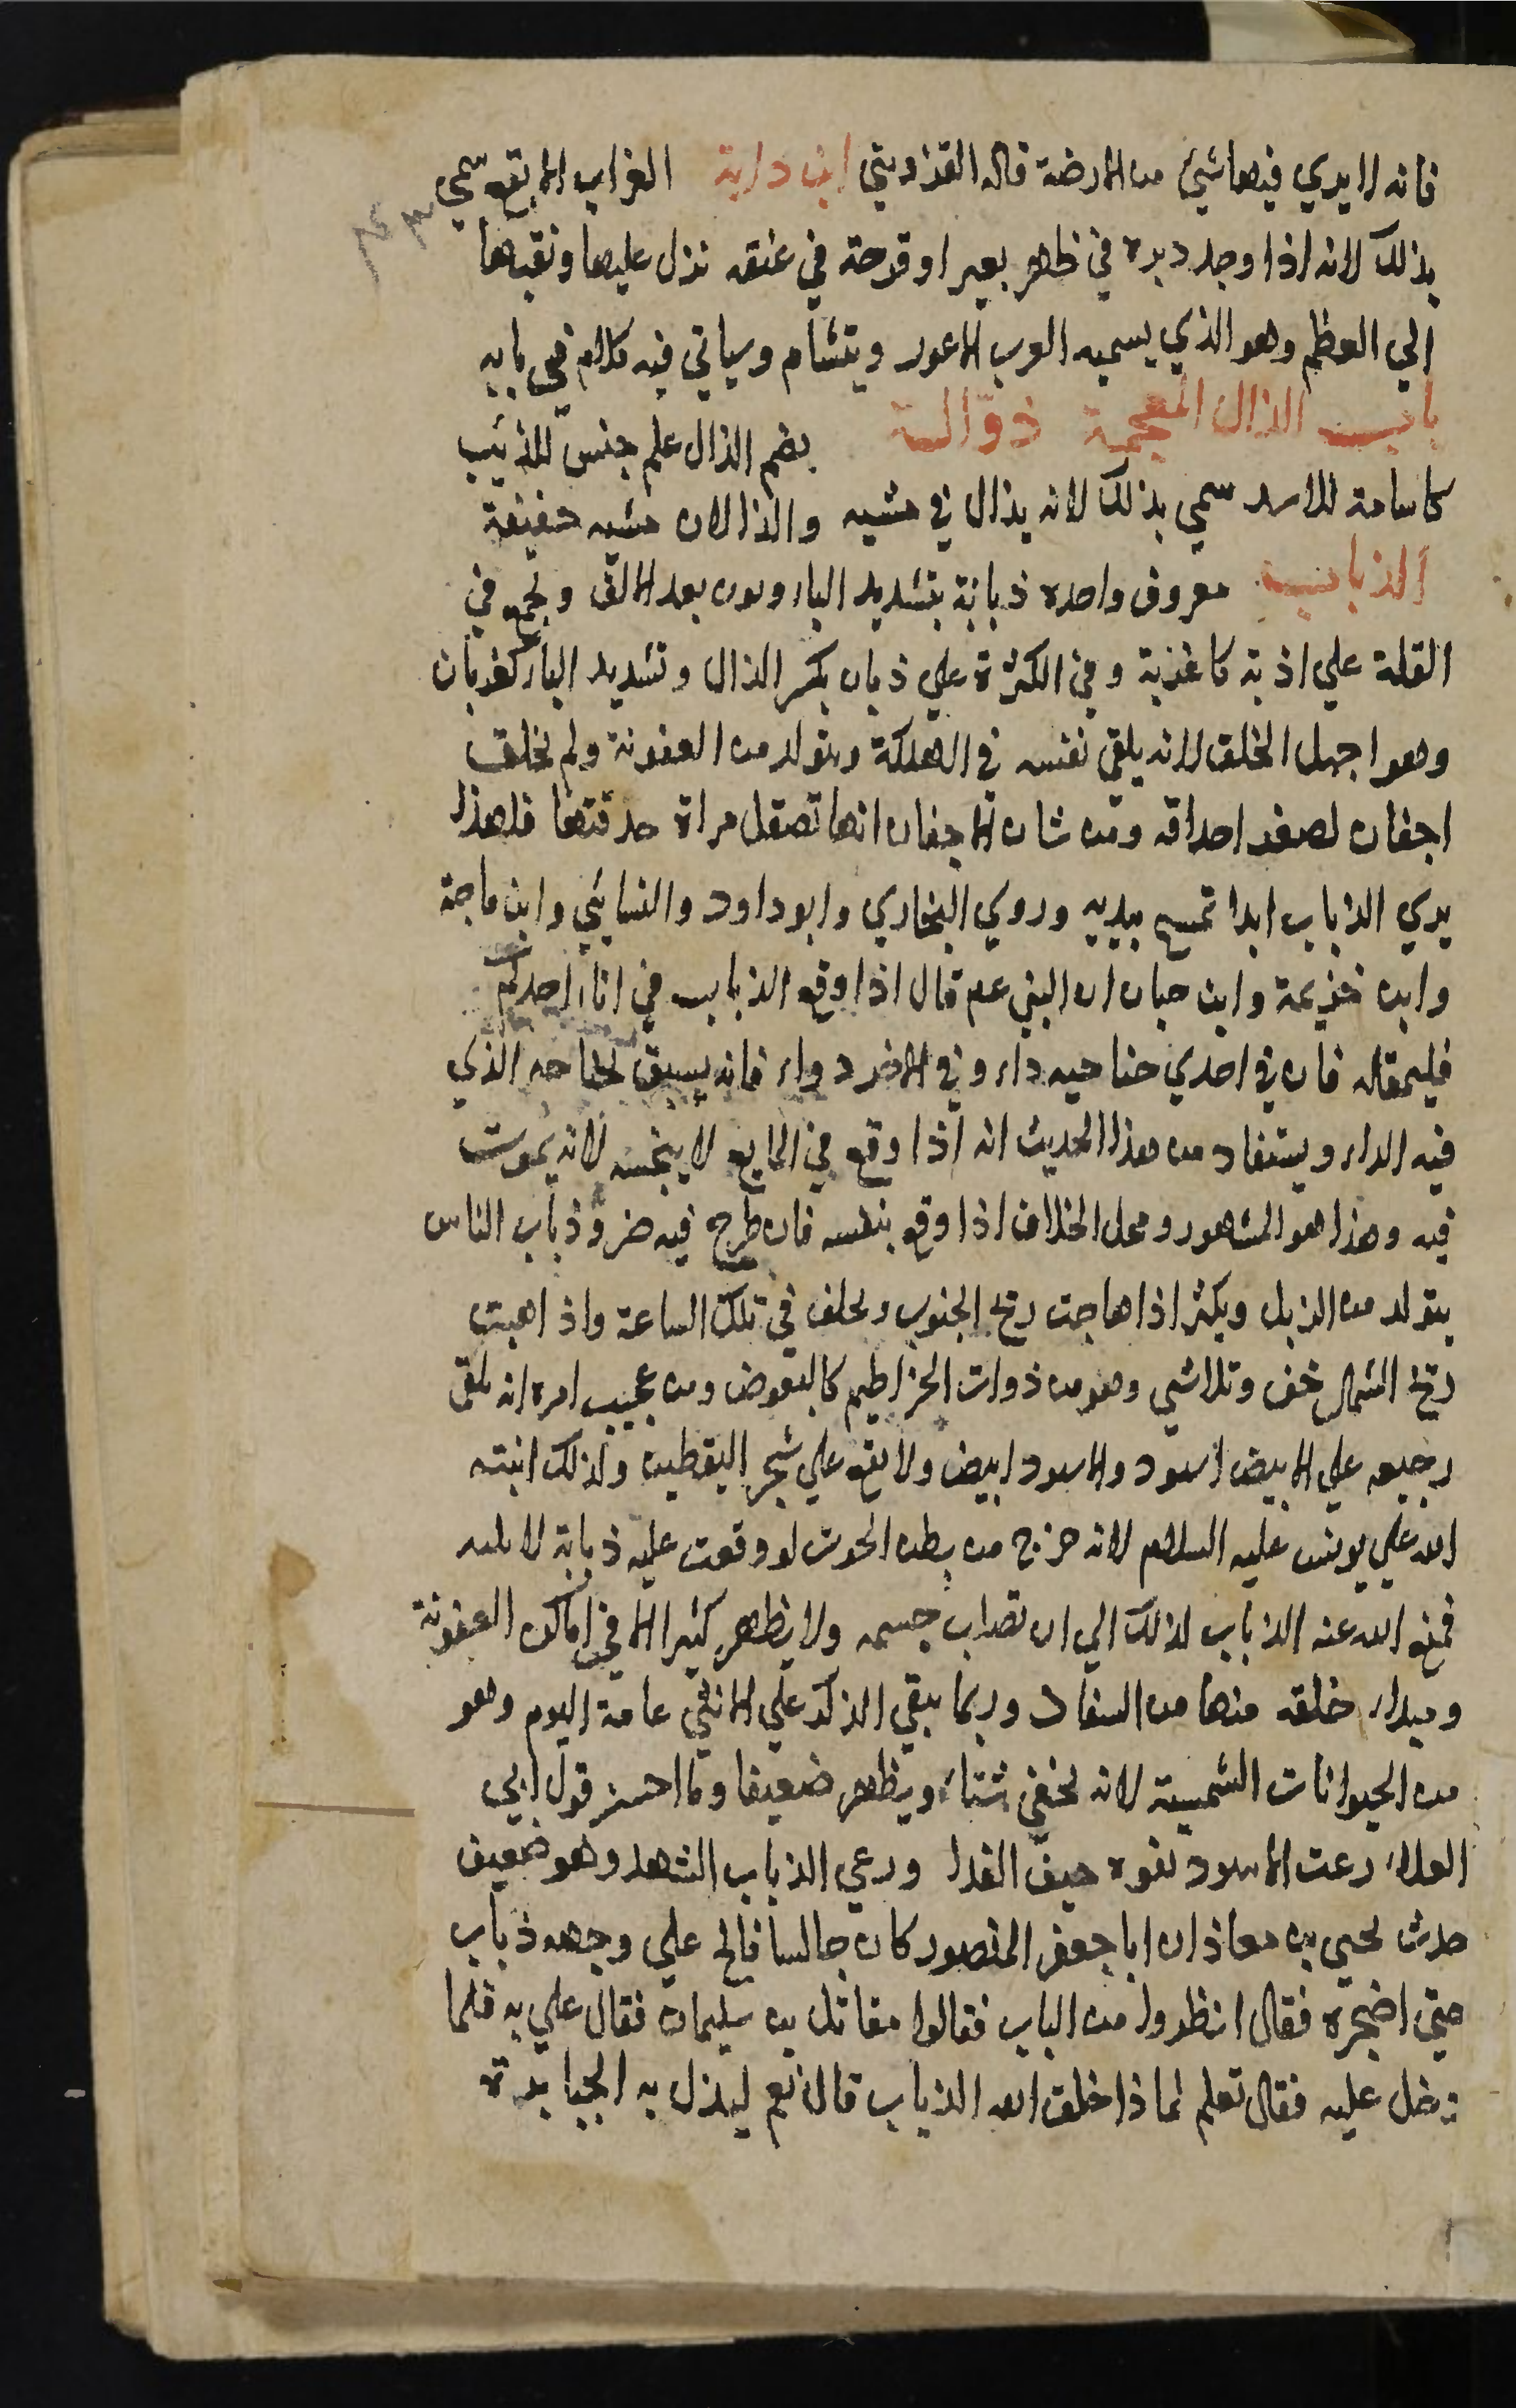 فانه لا يري فيها شيئ من الارضة قاله القزويني ابن داية الغراب الابقع سمي
بذلك لانه اذا وجد دبرة في ظهر بعير او قرحة في عنقه نزل عليها ونقبها
الي العظم وهو الذي يسميه العرب الاعور ويتشام وسياتي فيه كلام في بابه
باب الذال المعجمة ذوالة بضم الذال علم جنس للذئب
كاسامة للاسد سمي بذلك لانه يذال في مشيه والذالان مشيه خفيفة
الذباب معروف واحده ذبانة بتشديد الباء ونون بعد الالف ويجمع في
القلة علي اذبة كاغذبة وفي الكثرة علي ذبان بكسر الذال وتشديد الباء كغربان
وهو اجهل الخلق لانه يلقي نفسه في الهلكة ويتولد من العفونة ولم يخلق
اجفان لصغر احداقه ومن شان الاجفان انها تصقل مراة حدقتها فلهذا
يري الذباب ابدا تمسح بيديه وروي البخاري وابو داود والنسايئ وابن ماجة
وابن خزيمة وابن حبان ان النبي عم قال اذا وقع الذباب في اناء احدكم
فليمقله فان في احدي جناحيه داء وفي الاخر دواء فانه يسبق بجناحه الذي
فيه الداء ويستفاد من هذا الحديث انه اذا وقع في المايع لا ينجسه لانه يموت
فيه وهذا هو المشهور ومحل الخلاف اذا وقع بنفسه فان طرح فيه ضر وذباب الناس
يتولد من الزبل ويكثر اذا هاجت ريح الجنوب ويخلق في تلك الساعة واذا هبت
ريح الشمال خف وتلاشي وهو من ذوات الخراطيم كالبعوض ومن عجيب امره انه يلقي
رجيعه علي الابيض اسود والاسود ابيض ولا يقع علي شجر اليقطين ولذلك انبته
الله علي يونس عليه السلام لانه خرج من بطن الحوت لو وقعت عليه ذبابة لالمه
فمنع الله عنه الذباب لذلك الي ان تصلب جسمه ولا يظهر كثيرا الا في اماكن العفونة
ومبداء خلقه منها من السفاد وربما يبقي الذكر علي الانثي عامة اليوم وهو
من الحيوانات الشمسية لانه يخفي شتاء ويظهر ضعيفا وما احسن قول ابي
العلاء رعت الاسود بقوة جيف الفلا ورعي الذباب الشهد وهو ضعيف
حدث يحيي بن معاذ ان ابا جعفر المنصور كان جالسا فالح علي وجهه ذباب
حتي اضجره فقال انظروا من الباب فقالوا مقاتل بن سليمان فقال علي به فلما
دخل عليه فقال تعلم لماذا خلق الله الذباب قال نعم ليذل به الجبابرة